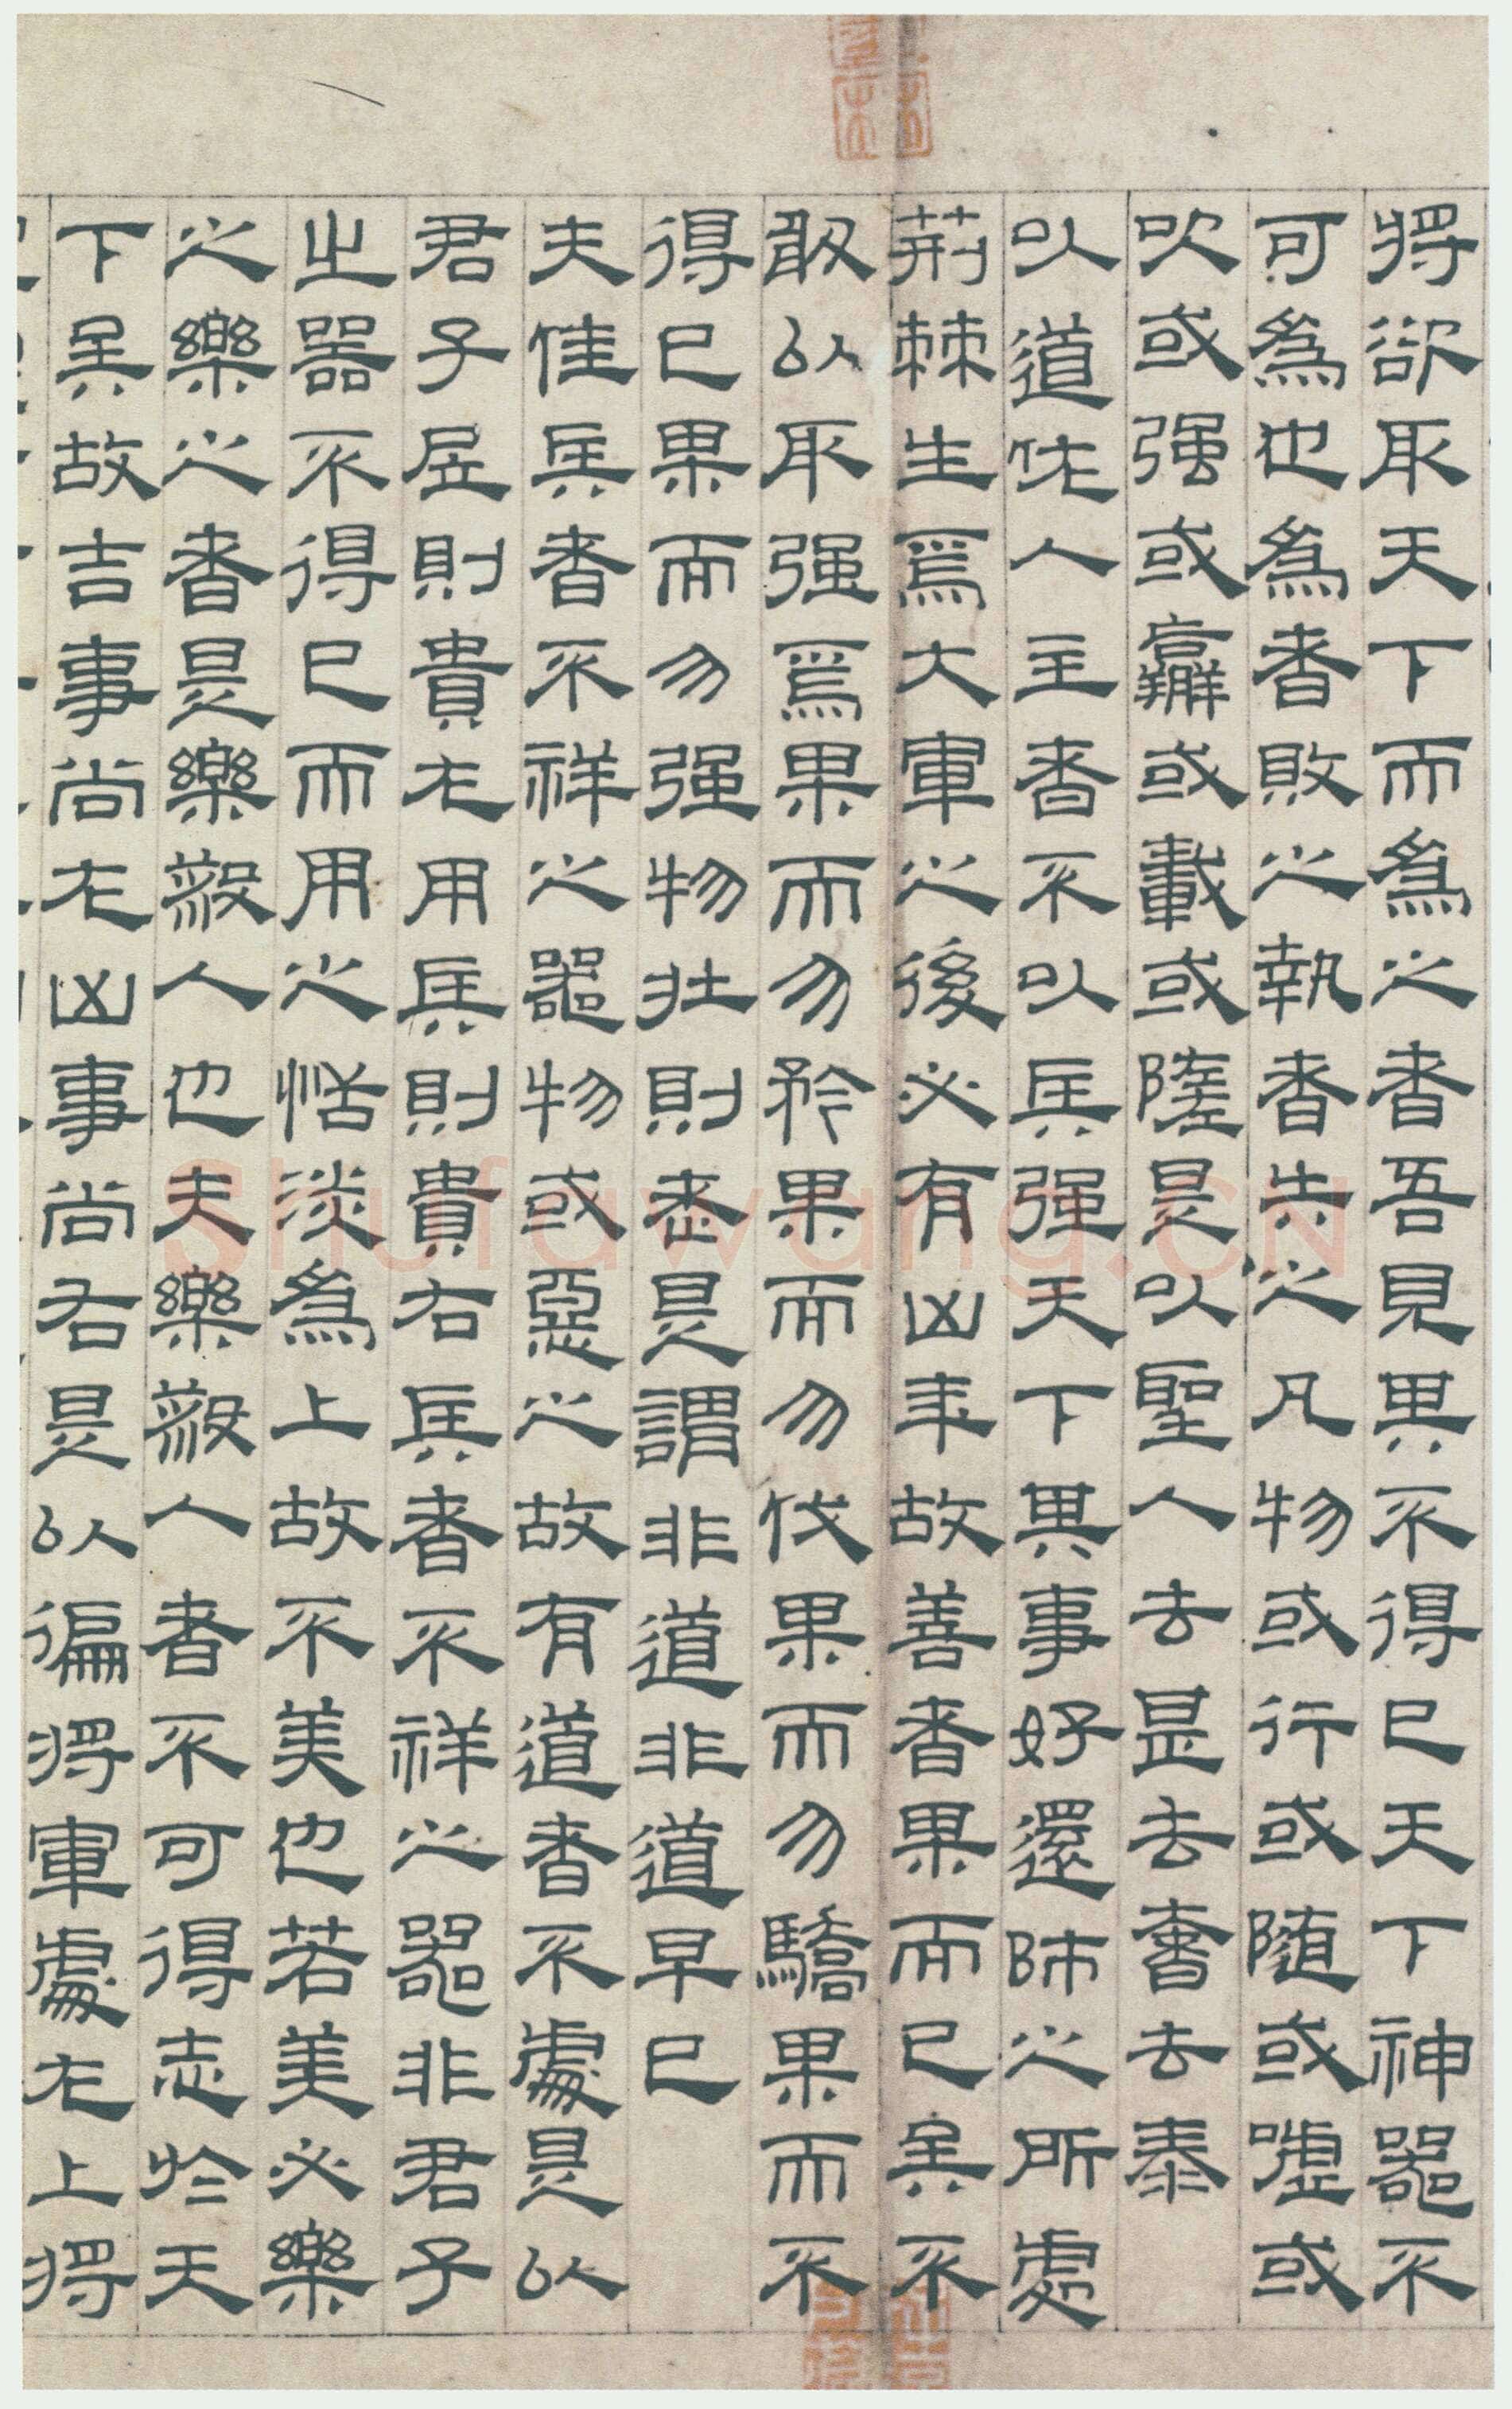 將欲取天下而爲之者吾見其不得已天下神器不
可爲也爲者敗之執者失之凡物或行或随或噓或
吹或强或羸或載或隳是以聖人去甚去奢去泰
以道佐人主者不以兵强天下其事好還師之所處
荊棘生焉大軍之後必有凶年故善者果而已矣不
敢以取强焉果而勿矜果而勿伐果而勿驕果而不
得已果而勿强物壯則老是謂非道非道早已
夫佳兵者不祥之器物或惡之故有道者不處是以
君子居則貴左用兵則貴右兵者不祥之器非君子
之器不得已而用之恬淡爲上故不美也若美必樂
之樂之者是樂殺人也夫樂殺人者不可得志於天
下矣故吉事尚左凶事尚右是以偏將軍處左上將
Shufawang.CN